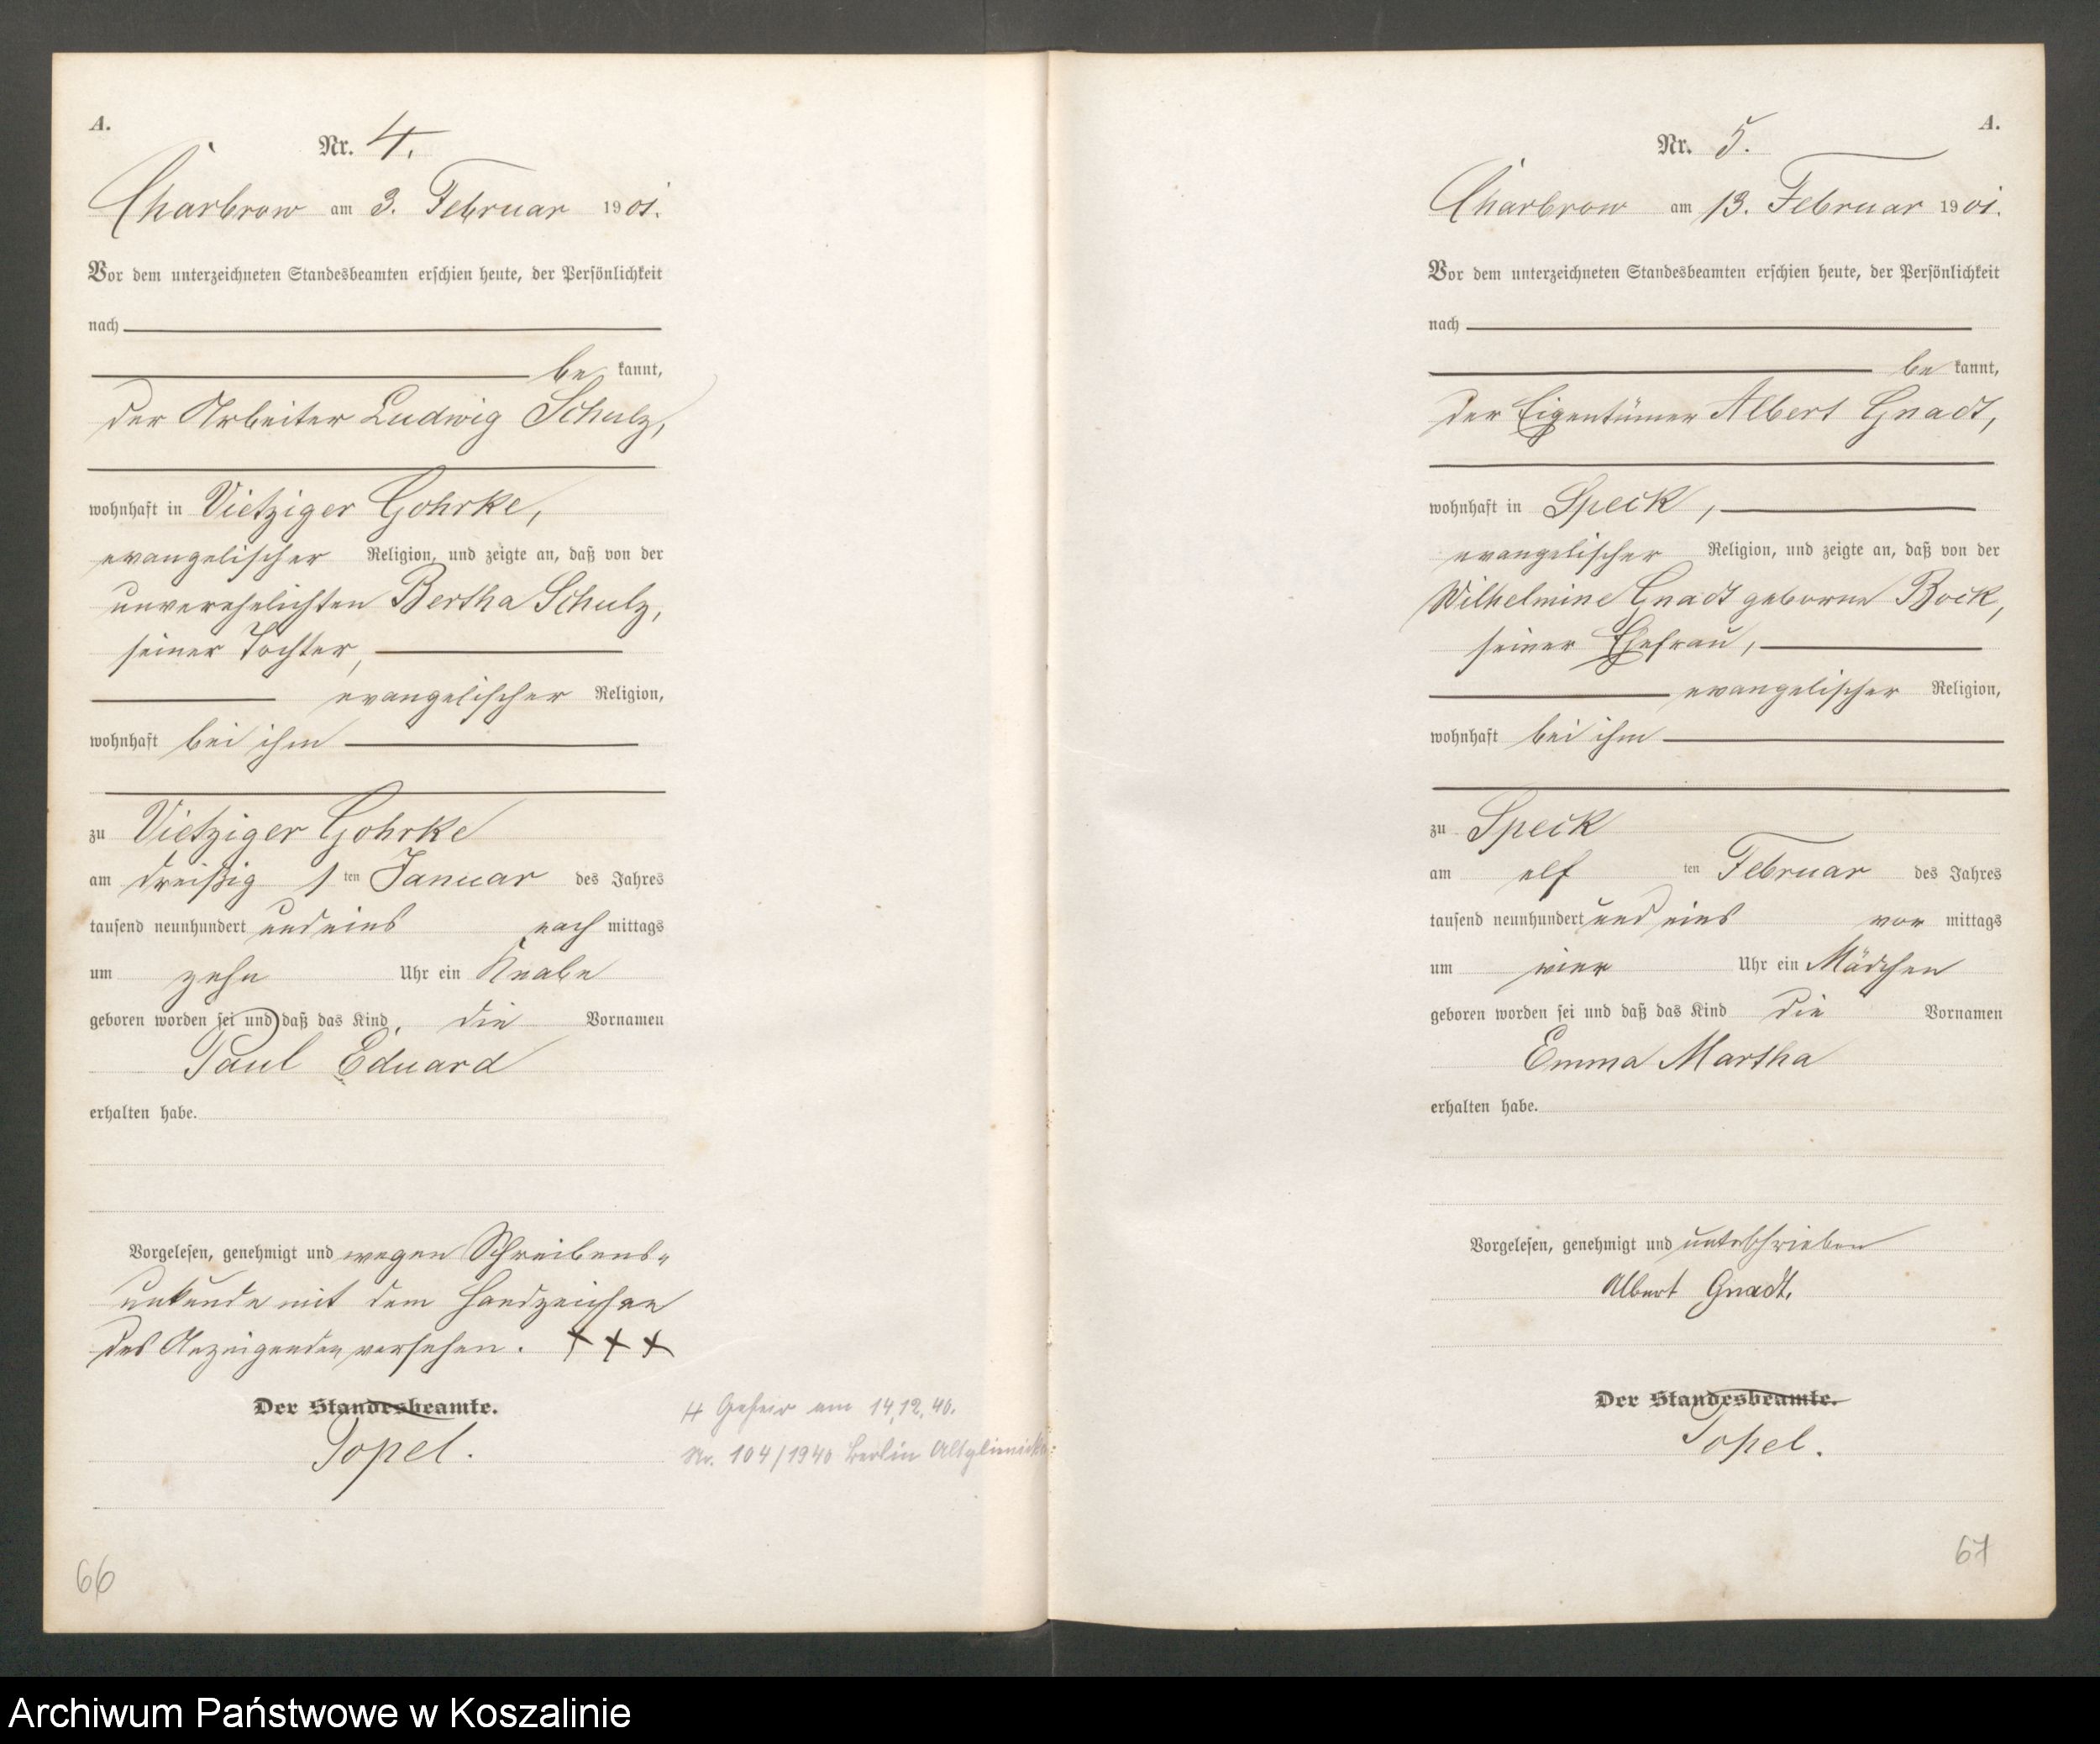 A.
Nr. 4.
Charbrow am 3. Februar 1901.
Vor dem unterzeichneten Standesbeamten erschien heute, der Persönlichkeit
nach
be kannt,
der Arbeiter Ludwig Schulz,
wohnhaft in Vietziger Gohrke,
evangelischer Religion, und zeigte an, daß von der
unverehelichten Bertha Schulz,
seiner Tochter,
evangelischer Religion,
wohnhaft bei ihm
zu Vietziger Gohrke
am dreißig 1 ten Januar des Jahres
tausend neunhundert und eins nach mittags
um zehn Uhr ein Knabe
geboren worden sei und daß das Kind die Vornamen
Paul Eduard
erhalten habe.
Vorgelesen, genehmigt und wegen Schreibens-
unkunde mit dem Handzeichen
des Anzeigenden versehen. + + +
Der Standesbeamte.
Topel.
am 14.12.40.
Nr. 104/1940 Berlin Altglienicke
66
A.
Nr. 5.
Charbrow am 13. Februar 1901.
Vor dem unterzeichneten Standesbeamten erschien heute, der Persönlichkeit
nach
be kannt,
der Eigentümer Albert Gnadt,
wohnhaft in Speck,
evangelischer Religion, und zeigte an, daß von der
Wilhelmine Gnadt geborne Bock,
seiner Ehefrau,
evangelischer Religion,
wohnhaft bei ihm
zu Speck
am elf ten Februar des Jahres
tausend neunhundert und eins vor mittags
um vier Uhr ein Mädchen
geboren worden sei und daß das Kind die Vornamen
Emma Martha
erhalten habe.
Vorgelesen, genehmigt und unterschrieben
Albert Gnadt.
Der Standesbeamte.
Topel.
67
Archiwum Państwowe w Koszalinie